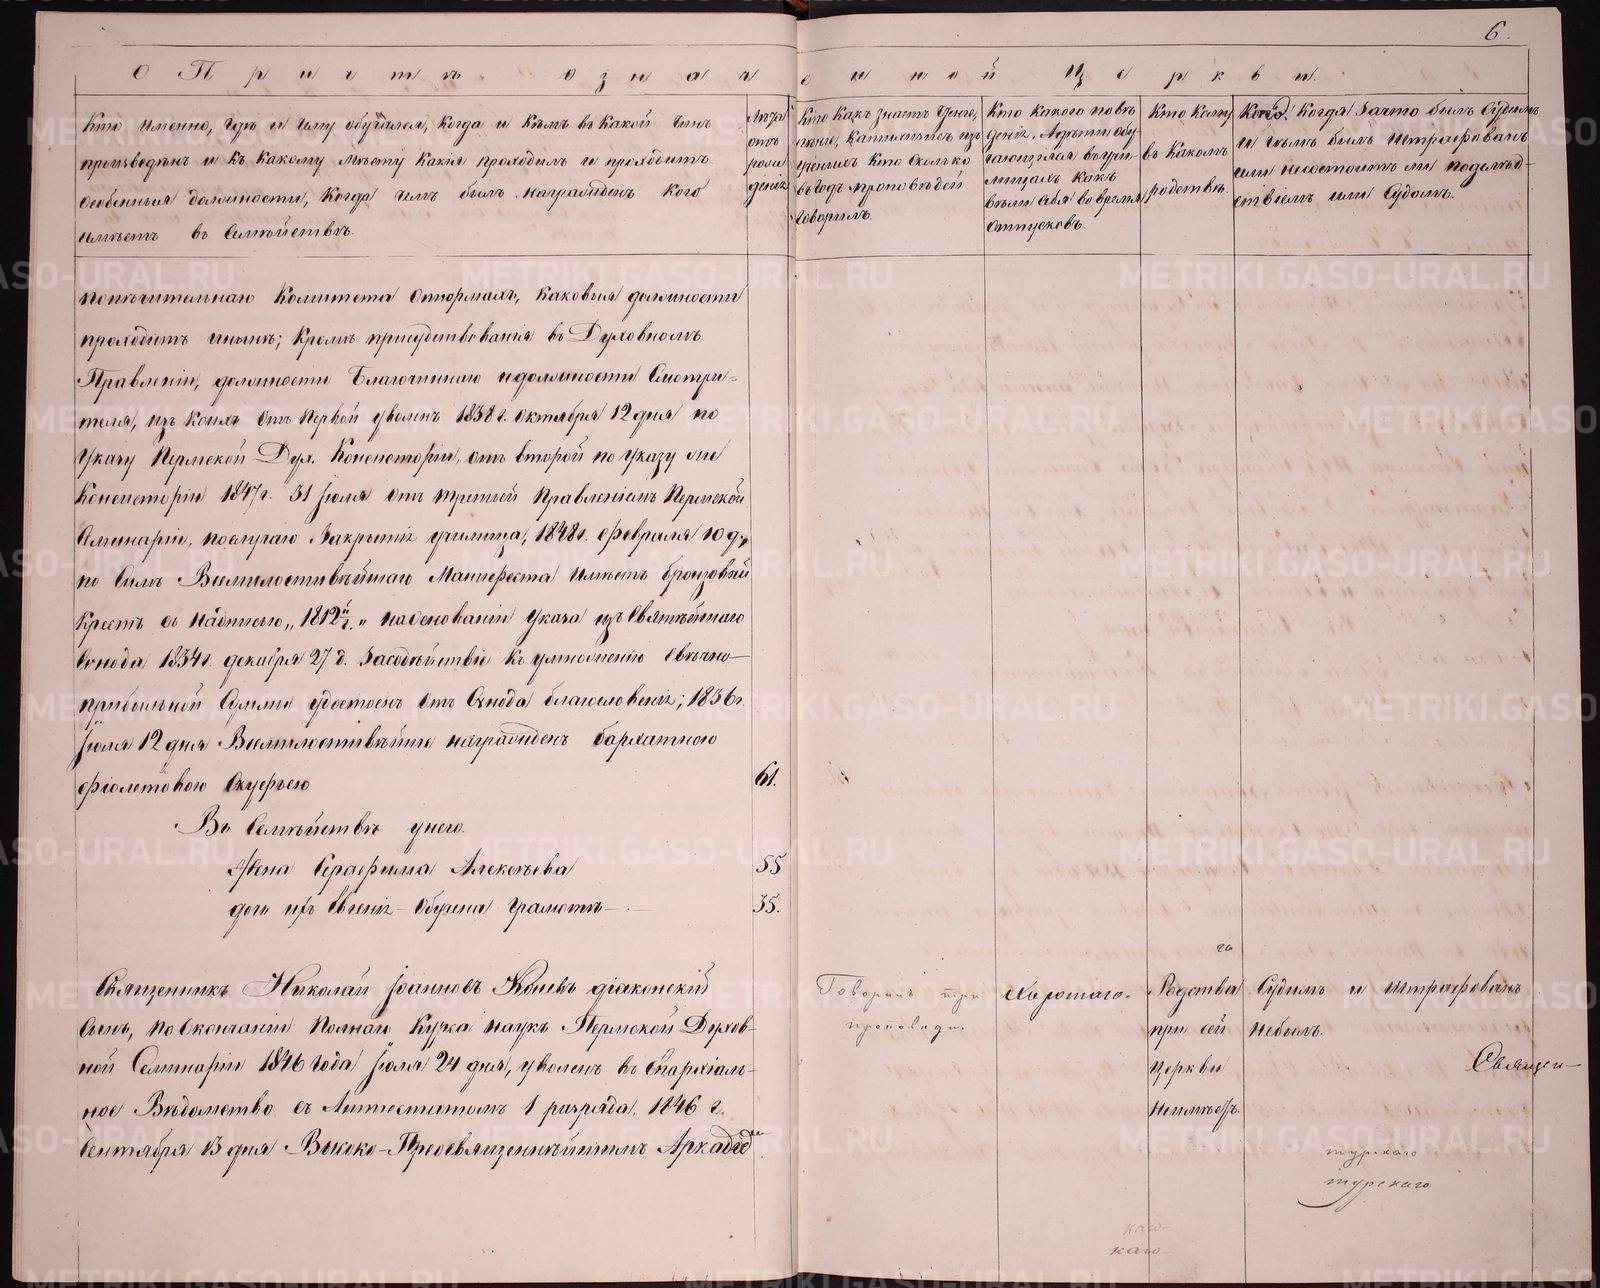 6.
О Причтѣ означенной Церкви.
Кто именно, гдѣ и чему обучался, когда и кѣмъ въ какой чинъ
произведенъ и къ какому мѣсту какія проходилъ и проходитъ
особенныя должности, когда чемъ былъ награжденъ кого
имѣетъ въ Семействѣ.
Лѣта
отъ
рож
денія
Кто какъ знаетъ чтеніе,
пѣніе, катихизисъ изъ
ученыхъ кто сколько
въ годъ проповѣдей
говорилъ.
Кто какого пове
денія. А дѣти обу
чающіяся въ учи
лищахъ какъ
вели себя во время
отпусковъ.
Кто кому
въ какомъ
родствѣ.
Кто, когда и за что былъ Судимъ
и чемъ былъ штрафованъ
или несостоитъ ли подслѣд-
ствіемъ или Судомъ.
попечительнаго Комитета Оттормахъ, каковыя должности
проходитъ и нынѣ; кромѣ присудствованія въ Духовномъ
Правленіи, должности Благочиннаго и должности Смотри-
теля, изъ коихъ отъ первой уволенъ 1838 г. Октября 12 дня по
Указу Пермской Дух. Консисторіи, отъ второй по указу же
Консисторіи 1847 г. 31 Іюля отъ третьей Правленіемъ Пермской
Семинаріи, по случаю Закрытія училища, 1848 г. февраля 10 д.,
по Силѣ Всемилостивѣйшаго Манифеста имѣетъ бронзовый
крестъ съ надписью „1812 г.“ на основаніи Указа изъ Святѣйшаго
Синода 1834 г. декабря 27 д. За содѣйствіе къ умноженію Свѣчно-
прибыльной Суммы удостоенъ отъ Синода благословенія; 1836 г.
Іюля 12 дня Всемилостивѣйше награжденъ бархатною
фіолетовою Скуфьею 61.
Въ Семействѣ у него.
Жена Серафима Алексѣева 55
дочь ихъ Евгенія – Обучена грамотѣ – 35.
Священникъ Николай Іоанновъ Коневъ діаконскій
Сынъ, по Окончаніи полнаго Курса наукъ Пермской Духов-
ной Семинаріи 1846 года Іюля 24 дня, уволенъ въ Епархіаль-
ное Вѣдомство съ Аттестатомъ 1 разряда, 1846 г.
Сентября 13 дня Высоко-Преосвященнѣйшимъ Аркадіемъ
Говорилъ три
проповѣди.
Хорошаго.
го
Родства
при сей
церкви
неимѣетъ.
Судимъ и штрафованъ
небылъ.
Священ-
турскаго
турскаго
каго-
каго-